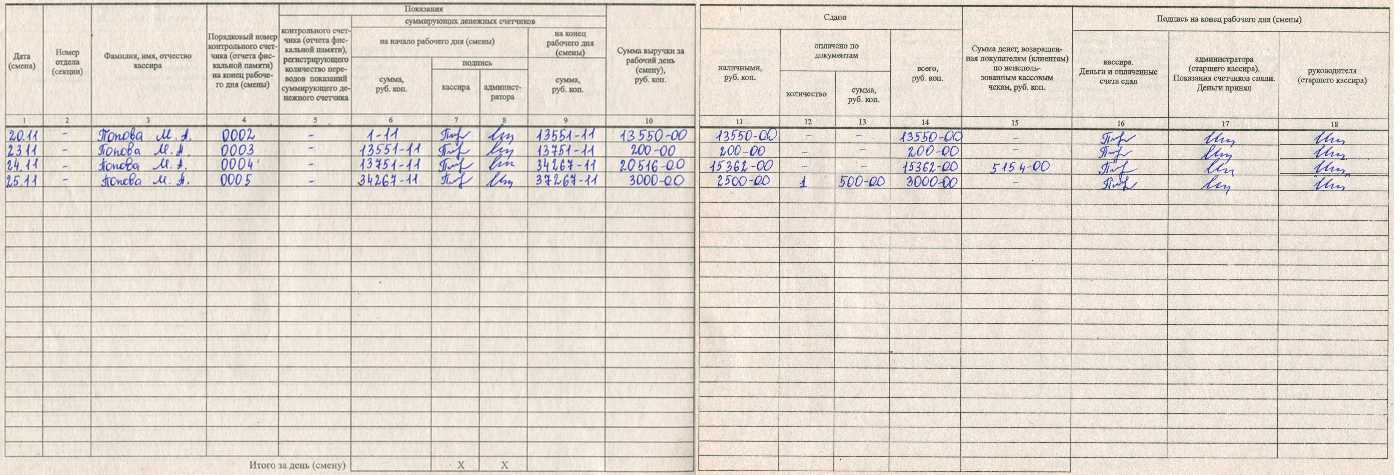 Дата (смена)
Номер отдела (секции)
Фамилия, имя, отчество кассира
Порядковый номер контрольного счетчика (отчета фискальной памяти) на конец рабочего дня (смены)
Показания
контрольного счетчика (отчета фискальной памяти), регистрирующего количество переводов показаний суммирующего денежного счетчика
суммирующих денежных счетчиков
на начало рабочего дня (смены)
сумма, руб. коп.
подпись
кассира
администратора
на конец рабочего дня (смены)
сумма, руб. коп.
Сумма выручки за рабочий день (смену), руб. коп.
Сдано
наличными, руб. коп.
оплачено по документам
количество
сумма, руб. коп.
всего, руб. коп.
Сумма денег, возвращенная покупателям (клиентам) по неиспользованным кассовым чекам, руб. коп.
Подпись на конец рабочего дня (смены)
кассира. Деньги и оплаченные счета сдал
администратора (старшего кассира). Показания счетчиков сняли. Деньги принял
руководителя (старшего кассира)
1 2 3 4 5 6 7 8 9 10 11 12 13 14 15 16 17 18
20.11 - Попова М. А. 0002 - 1-11 13551-11 13550-00 13550-00 - - 13550-00 -
23.11 - Попова М. А. 0003 - 13551-11 13751-11 200-00 200-00 - - 200-00 -
24.11 - Попова М. А. 0004 - 13751-11 34267-11 20516-00 15362-00 - - 15362-00 5154-00
25.11 - Попова М. А. 0005 - 34267-11 37267-11 3000-00 2500-00 1 500-00 3000-00 -
Итого за день (смену) X X